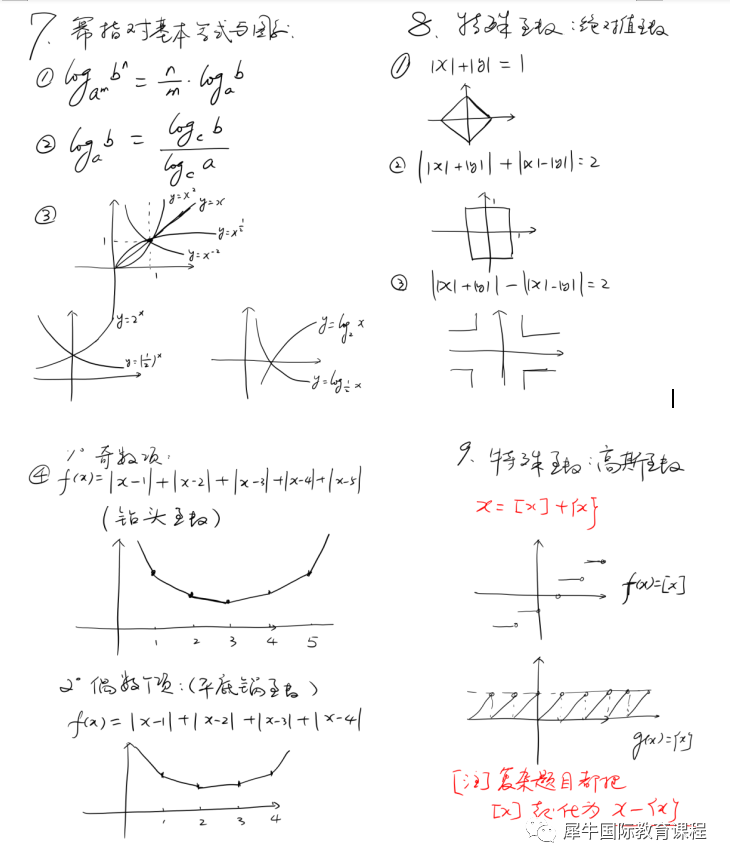 7. 幂指对基本公式与图象:
① log_{a^m} b^n = n/m · log_a b
② log_a b = log_c b / log_c a
③
y=x²
y=x
y=x^{1/2}
y=x^{-2}
1
1
y=2^x
y=(1/2)^x
y=log_2 x
y=log_{1/2} x
1° 奇数项:
④ f(x)=|x-1|+|x-2|+|x-3|+|x-4|+|x-5|
(钻头函数)
1 2 3 4 5
2° 偶数项:(平底锅函数)
f(x)=|x-1|+|x-2|+|x-3|+|x-4|
1 2 3 4
8. 特殊函数:绝对值函数
① |x|+|y|=1
② ||x|+|y||+||x|-|y||=2
1
1
③ ||x|+|y||-||x|-|y||=2
9. 特殊函数:高斯函数
x=[x]+{x}
f(x)=[x]
g(x)={x}
[注]复杂题目都把
[x] 转化为 x-{x}
犀牛国际教育课程